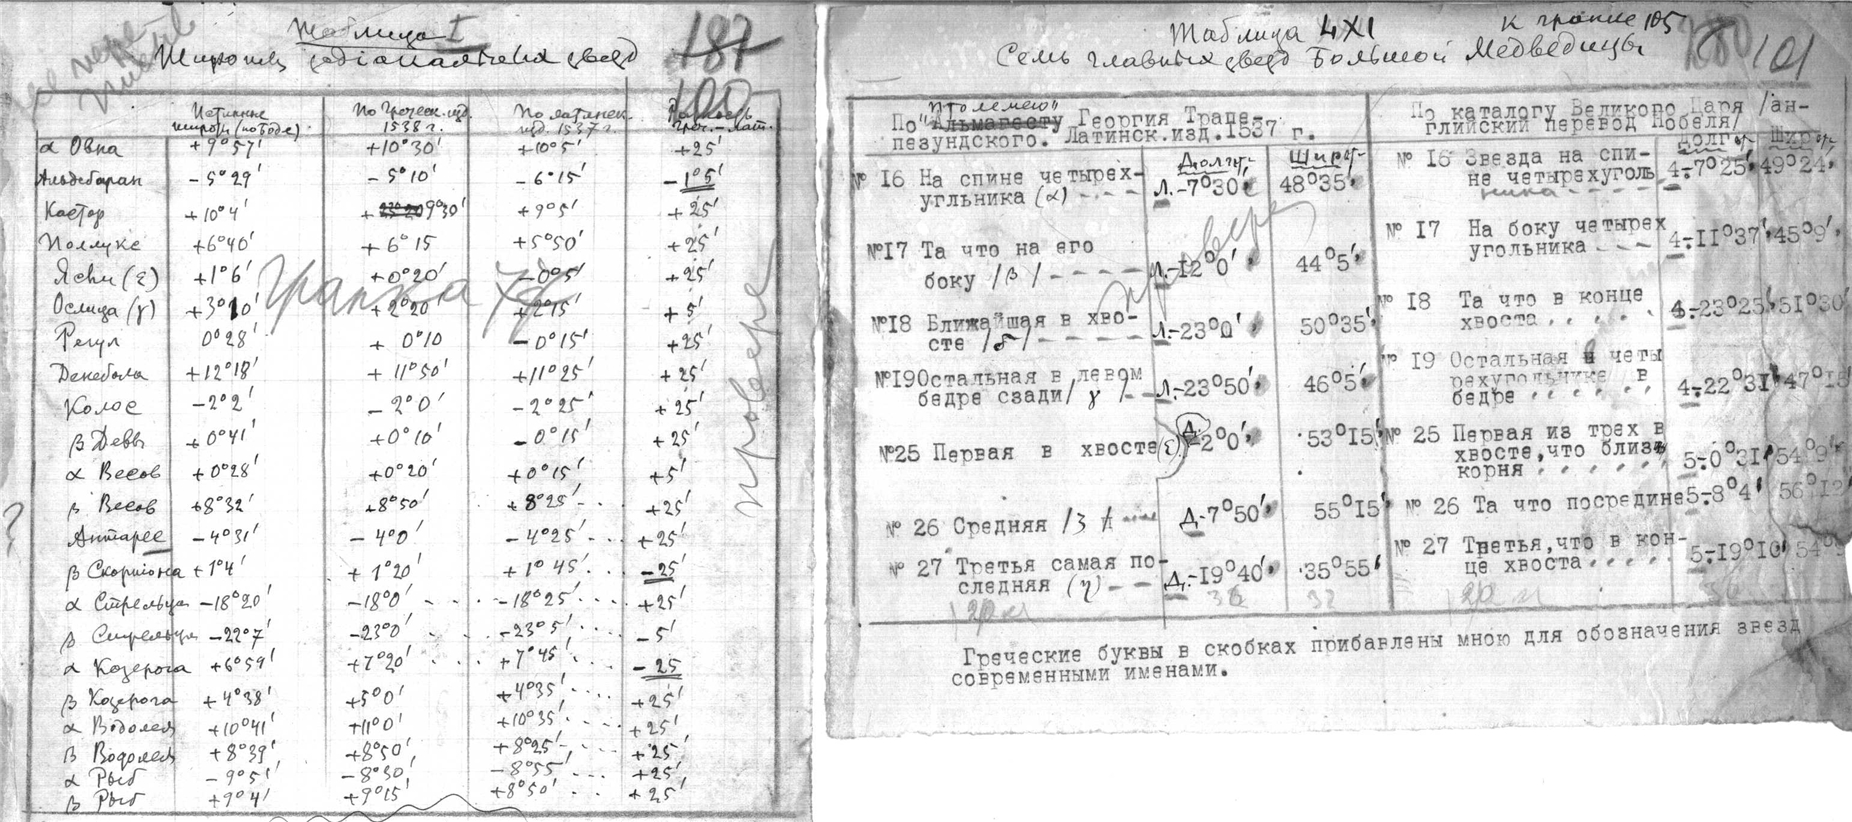 Таблица I
Широты зодіакальных звезд
187
100
Истинные широты (по Боде)
По Греческ. изд. 1538 г.
По латинск. изд. 1537 г.
Разность греч.-лат.
α Овна +9°57' +10°30' +10°5' +25'
Альдебаран -5°29' -5°10' -6°15' -1°5'
Кастор +10°4' + 9°30' +9°5' +25'
Поллукс +6°40' +6°15 +5°50' +25'
Ясли (ε) +1°6' +0°20' -0°5' +25'
Ослица (γ) +3°10' +2°20' +2°15' +5'
Регул 0°28' + 0°10 -0°15' +25'
Денебола +12°18' + 11°50' +11°25' +25'
Колос -2°2' -2°0' -2°25' +25'
β Девы +0°41' +0°10' -0°15' +25'
α Весов +0°28' +0°20' +0°15' +5'
β Весов +8°32' +8°50' +8°25' +25'
Антарес -4°31' -4°0' -4°25' +25'
β Скорпиона +1°4' +1°20' +1°45' -25'
α Стрельца -18°20' -18°0' -18°25' +25'
β Стрельца -22°7' -23°0' -23°5' -5'
α Козерога +6°59' +7°20' +7°45' -25
β Козерога +4°38' +5°0' +4°35' +25'
α Водолея +10°41' +11°0' +10°35' +25'
β Водолея +8°39' +8°50' +8°25' +25'
α Рыб -9°5' -8°30' -8°55' +25'
β Рыб +9°4' +9°15' +8°50' +25'
Гранка 74
провере
?
Таблица 4XI
к гранке 105
Семь главных звезд Большой Медведицы
180
101
По "Птолемею" Альмагесту Георгия Трапезундского. Латинск.изд.1537 г.
По каталогу Великого Царя /английский перевод Нобеля/
Долгт. Широт.
Долгот. Широт.
№ 16 На спине четырех-
угльника (α) Л.-7°30' 48°35'
№ 16 Звезда на спи-
не четырехуголь
ника 4-7°25' 49°24'
№17 Та что на его
боку /β/ Л.-12°0' 44°5'
№ 17 На боку четырех
угольника 4-11°37' 45°9'
№18 Ближайшая в хво-
сте /δ/ Л.-23°0' 50°35'
№ 18 Та что в конце
хвоста 4-23°25' 51°30'
№19 Остальная в левом
бедре сзади/ γ / Л.-23°50' 46°5'
№ 19 Остальная в четы
рехугольнике в
бедре 4-22°31' 47°15
№25 Первая в хвосте (ε) Д.-2°0' 53°15'
№ 25 Первая из трех в
хвосте,что близь
корня 5-0°31' 54°9'
№ 26 Средняя /З Д-7°50' 55°15'
№ 26 Та что посредине 5-8°4' 56°12'
№ 27 Третья самая по-
следняя (η) Д.-19°40' 35°55'
№ 27 Третья,что в кон-
це хвоста 5-19°10' 54°9
провере
Греческие буквы в скобках прибавлены мною для обозначения звезд
современными именами.